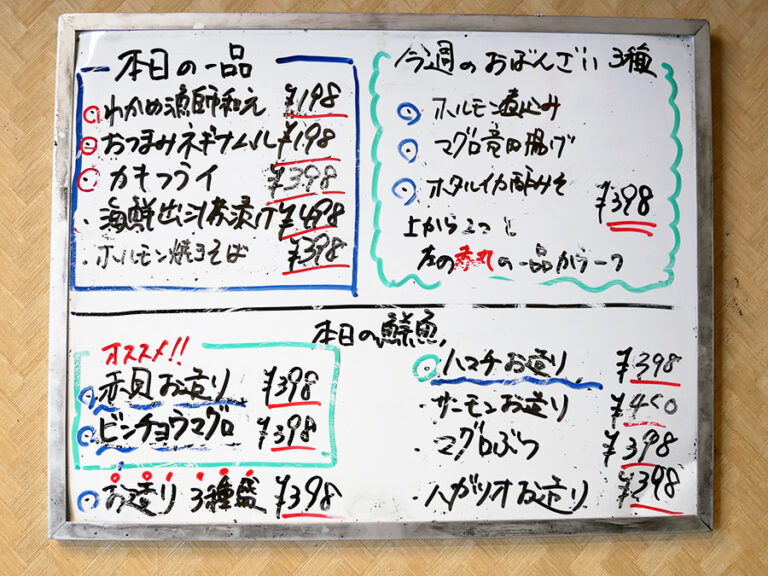 本日の一品
わかめ漁師和え ¥198
おつまみネギナムル ¥198
カキフライ ¥398
・海鮮出汁茶漬け ¥498
・ホルモン焼きそば ¥398
今週のおばんざい 3種
ホルモン煮込み
マグロ竜田揚げ
ホタルイカ酢みそ
¥398
上から2つと
左の赤丸の一品から一つ
本日の鮮魚
オススメ!!
赤貝お造り ¥398
ビンチョウマグロ ¥398
お造り 3種盛 ¥398
ハマチお造り ¥398
・サーモンお造り ¥450
・マグロぶつ ¥398
・ハガツオお造り ¥398